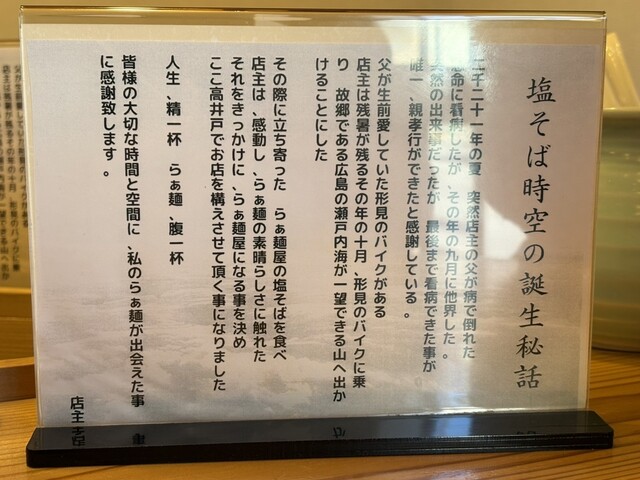 塩そば時空の誕生秘話
二千二十一年の夏 突然店主の父が病で倒れた
懸命に看病したが、その年の九月に他界した。
突然の出来事だったが 最後まで看病できた事が
唯一、親孝行ができたと感謝している。
父が生前愛していた形見のバイクがある
店主は残暑が残るその年の十月、形見のバイクに乗
り 故郷である広島の瀬戸内海が一望できる山へ出か
けることにした
その際に立ち寄った らぁ麺屋の塩そばを食べ
店主は、感動し、らぁ麺の素晴らしさに触れた
それをきっかけに、らぁ麺屋になる事を決め
ここ高井戸でお店を構えさせて頂く事になりました
人生、精一杯 らぁ麺、腹一杯
皆様の大切な時間と空間に、私のらぁ麺が出会えた事
に感謝致します。
店主